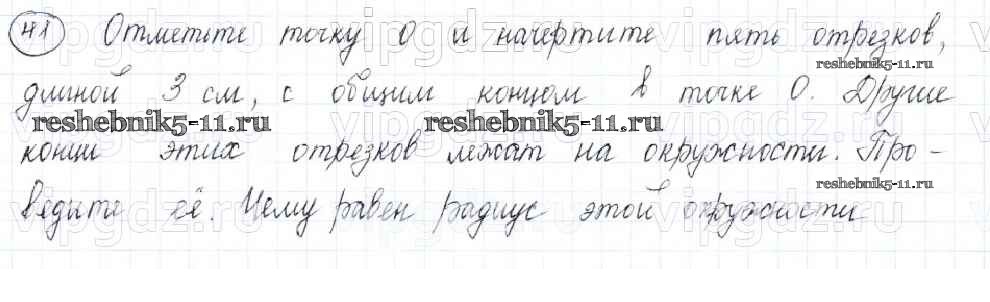 41 Отметьте точку О и начертите пять отрезков,
длиной 3 см, с общим концом в точке О. Другие
концы этих отрезков лежат на окружности. Про-
ведите её. Чему равен радиус этой окружности
reshebnik5-11.ru
reshebnik5-11.ru
reshebnik5-11.ru
reshebnik5-11.ru
vipgdz.ru